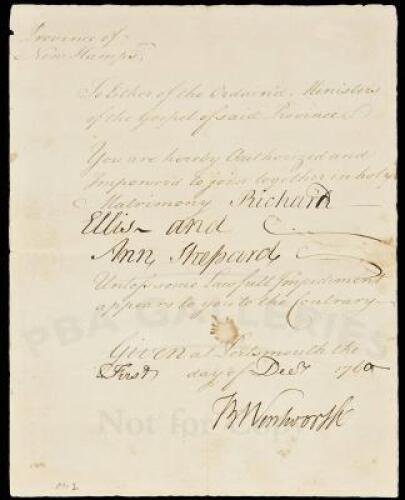 Province of
New Hampsr.
To Either of the Ordained Ministers
of the Gospel of said Province
You are hereby Authorized and
Impowred to join together in holy
Matrimony Richard
Ellis and
Ann Shepard
Unless some Lawfull Impediment
appears to you to the Contrary
PBA GALLERIES
Given at Portsmouth the
First day of Decr. 1760
Not for Copy
BWentworth